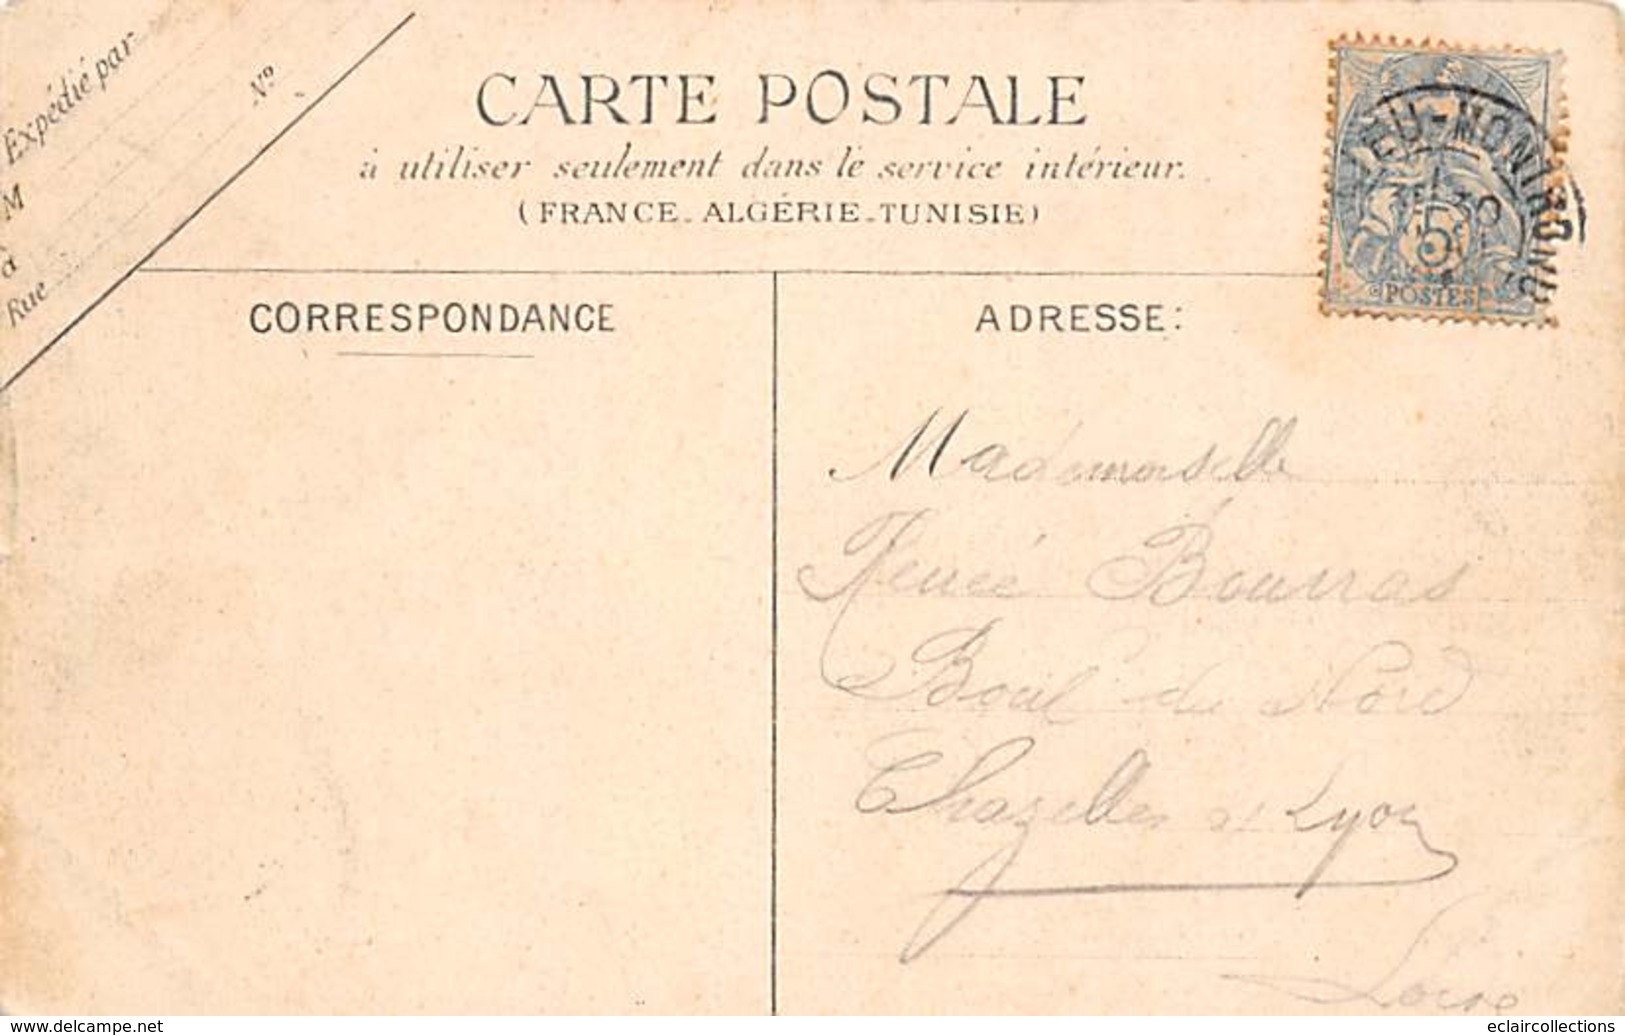 Expédié par
Nº
M
à
Rue
CARTE POSTALE
à utiliser seulement dans le service intérieur.
(FRANCE_ALGÉRIE_TUNISIE)
5
POSTES
CORRESPONDANCE
ADRESSE:
Mademoiselle
Renée Bourras
Boul du Nord
Chazelles s/ Lyon
Loire
www.delcampe.net
eclaircollections